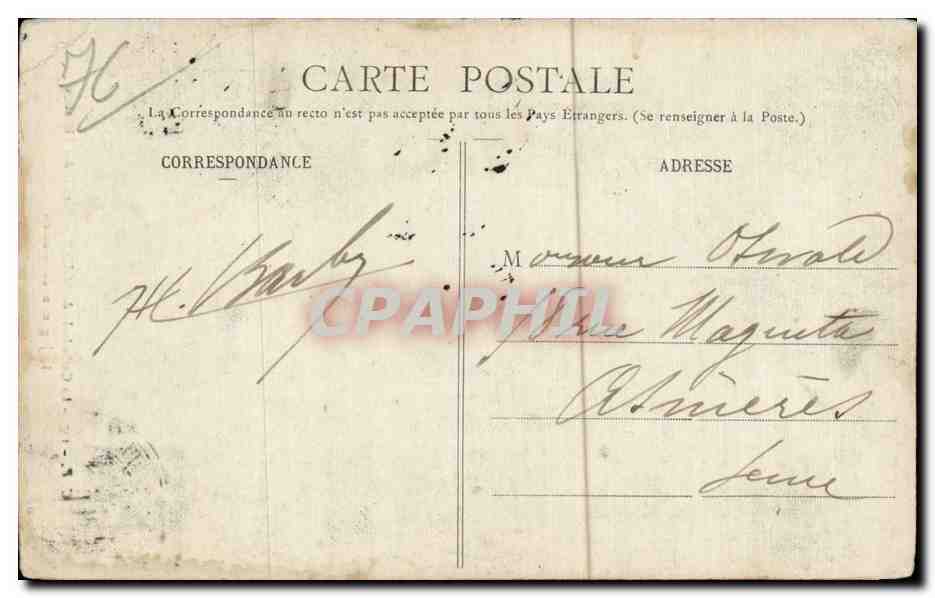 76
CARTE POSTALE
La Correspondance au recto n'est pas acceptée par tous les Pays Étrangers. (Se renseigner à la Poste.)
CORRESPONDANCE
ADRESSE
H. Barby
Monsieur Oswald
rue Magenta
Asnières
Seine
CPAPHIL